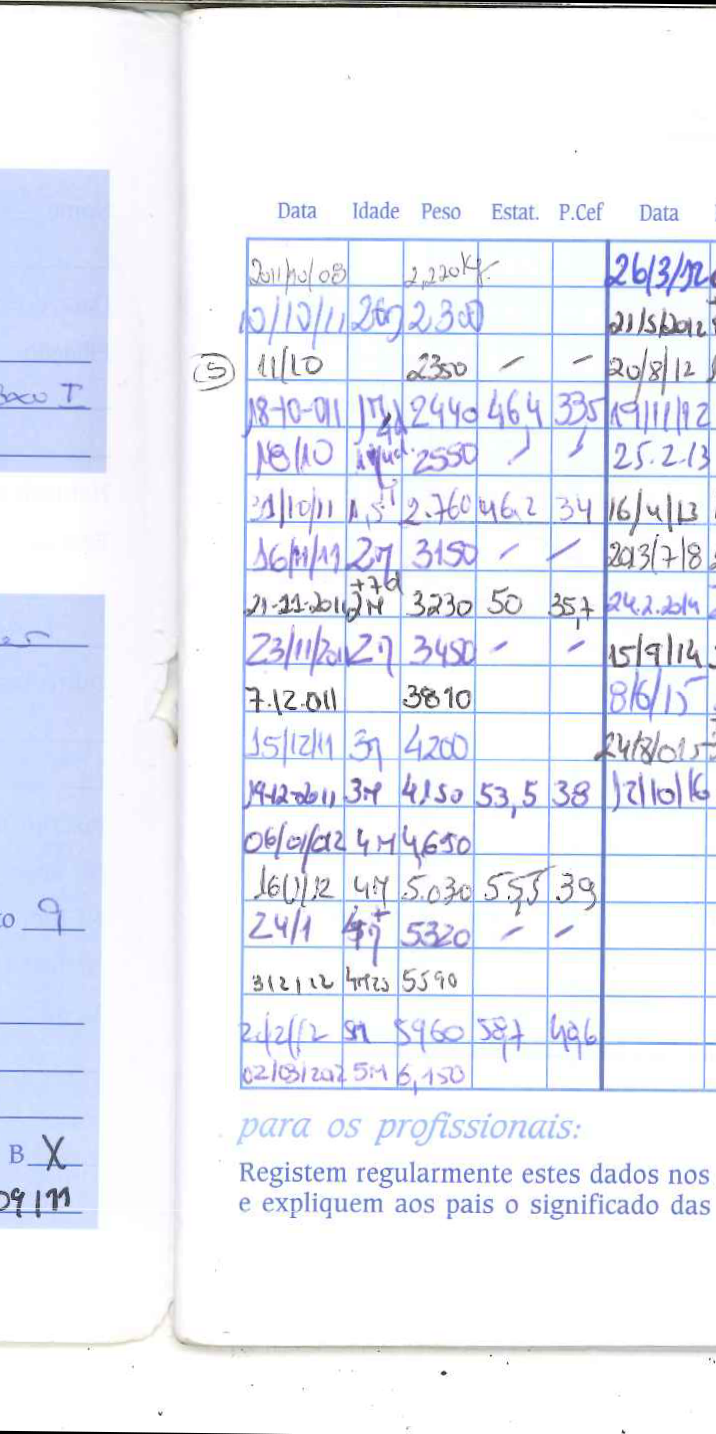 Data Idade Peso Estat. P.Cef Data
2011/10/08 2,220Kg 26/3/12
10/10/11 26d 2300 21/5/2012
5 11/10 2350 - - 20/8/12
18-10-011 1M 2440 46,4 33,5 19/11/12
18/10 2550 25.2.13
31/10/11 1,5 2.760 46.2 34 16/4/13
16/11/11 2M 3150 - - 2013/7/8
21-11-2011 2M +7d 3230 50 35,7 24.2.2014
23/11/2011 2M 3450 - - 15/9/14
7.12.011 3810 8/6/15
15/12/11 3M 4200 24/8/015
19-12-2011 3M 4,150 53,5 38 12/10/16
06/01/012 4M 4,650
16/1/12 4M 5.030 55,5 39
24/1 5320 - -
3/2/12 5590
5M 5960 58,7 40,6
02/03/2012 5M 6,150
para os profissionais:
Registem regularmente estes dados nos
e expliquem aos pais o significado das
9
B X
09/11